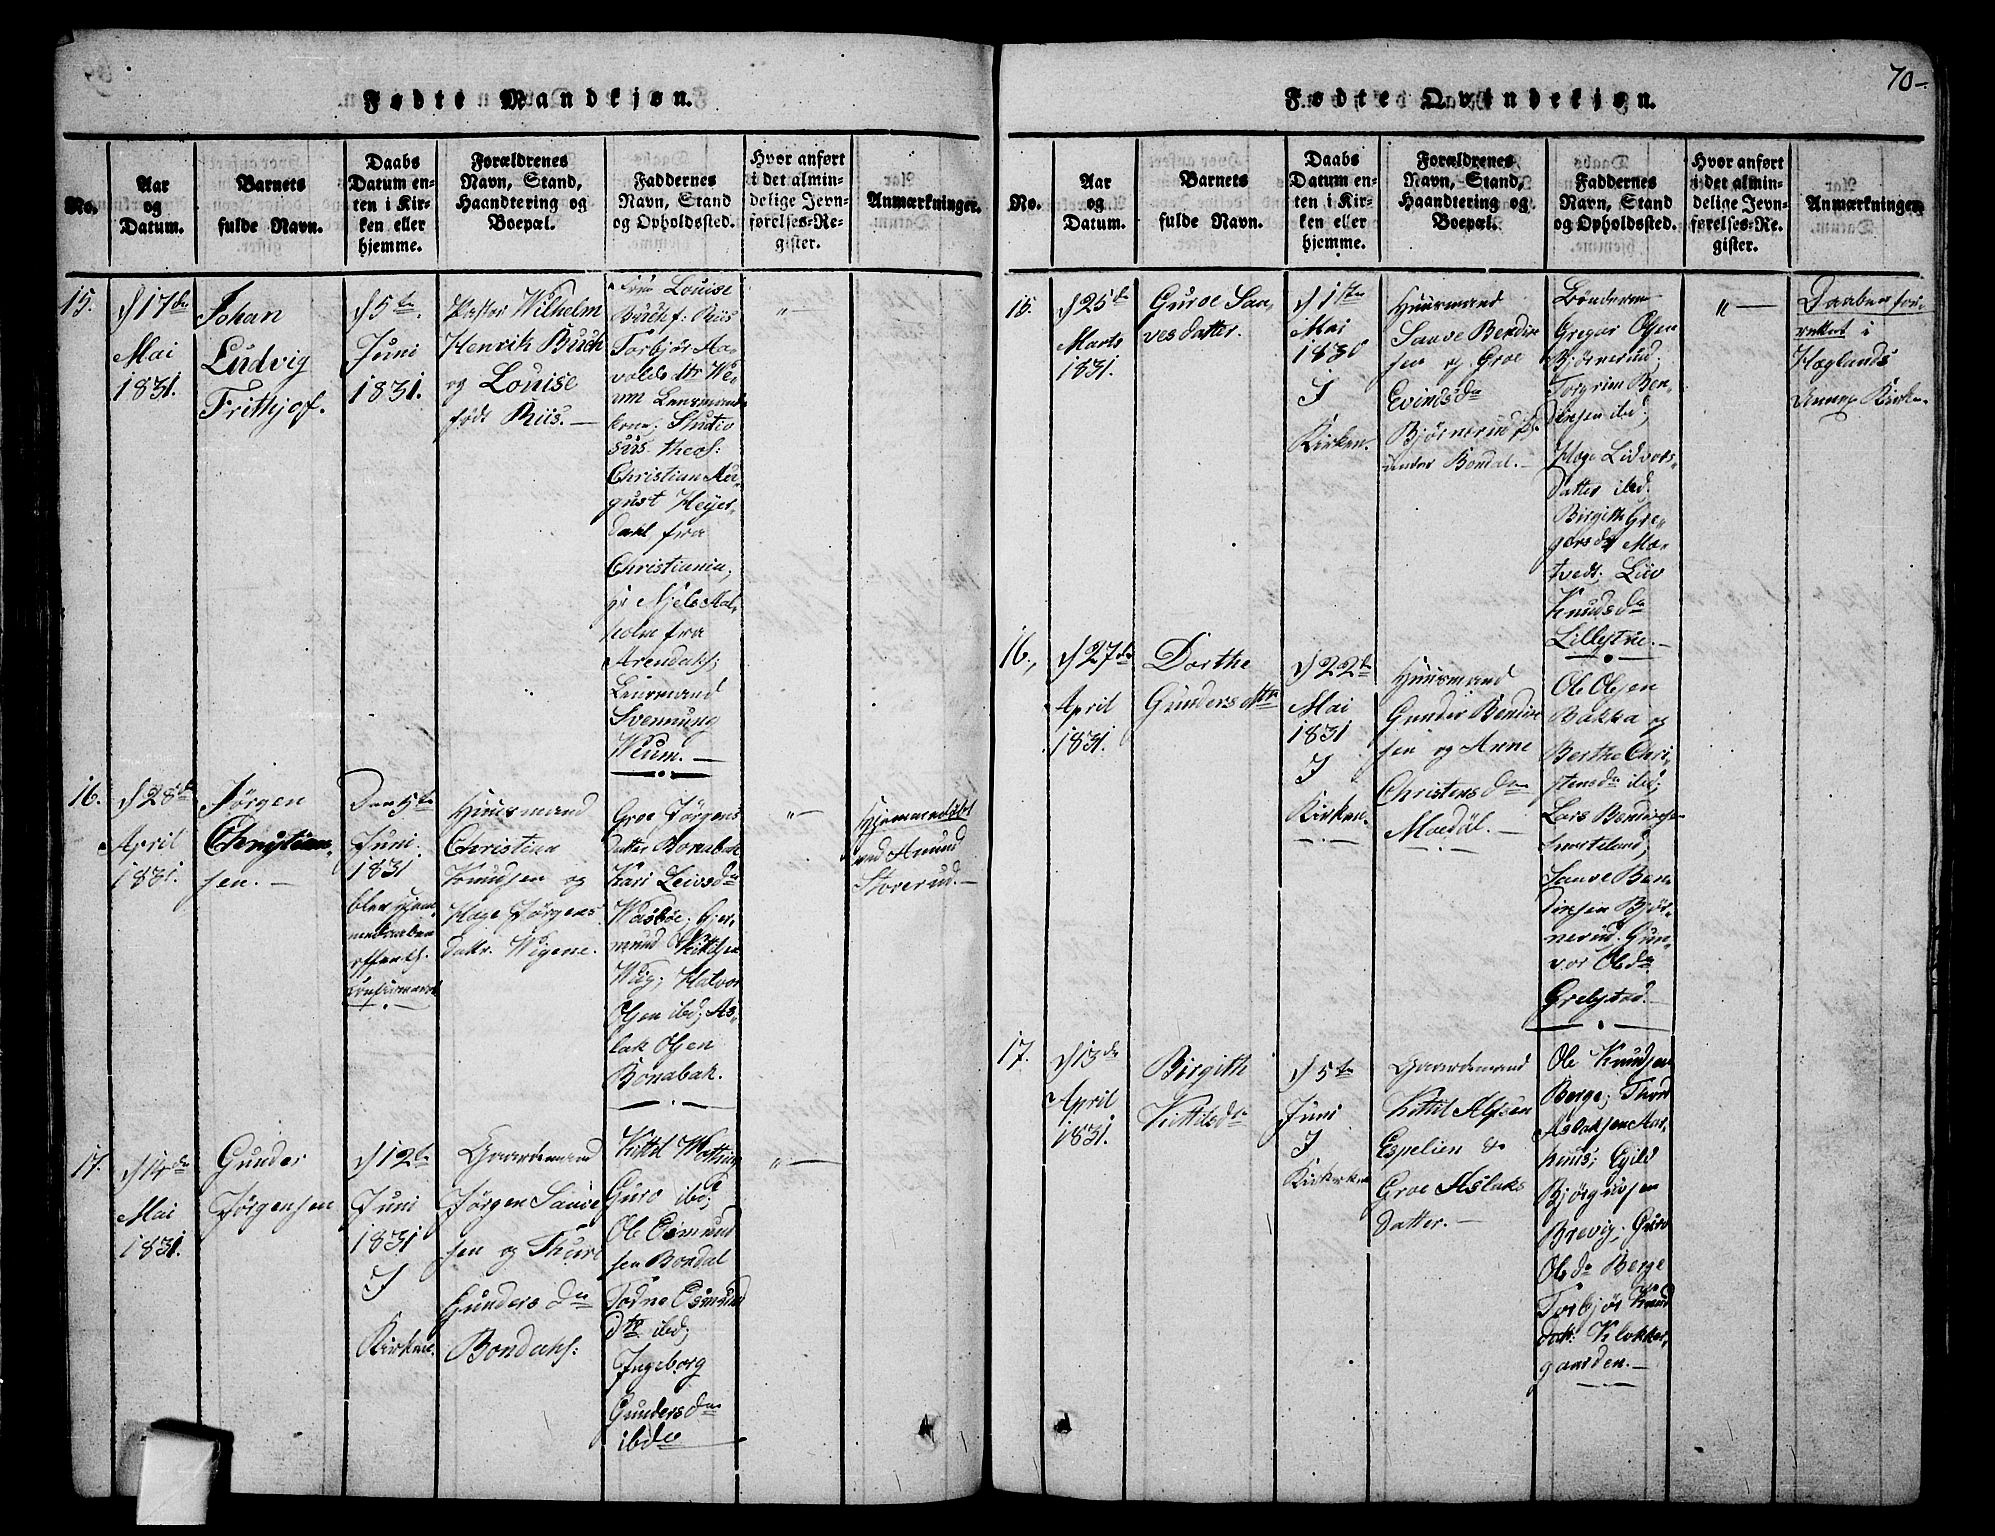 Fødte Mandkjøn.
No.
Aar
og
Datum.
Barnets
fulde Navn.
Daabs
Datum en-
ten i Kir-
ken eller
hjemme.
Forældrenes
Navn, Stand,
Haandtering og
Boepæl.
Faddernes
Navn, Stand
og Opholdsted.
Hvor anført
i det almin-
delige Jevn-
førelses-Re-
gister.
Anmærkninger.
15.
d 17de
Mai
1831.
Johan
Ludvig
Frithjof.
d 5te
Juni
1831.
Pastor Wilhelm
Henrik Buch
og Louise
født Riis. —
Louise
Buch f. Riis
Torbjør Aa-
volds dtr We-
um Lensmands
kone; Studio
sus theol:
Christian Au-
gust Heyer-
dahl fra
Christiania;
Niels Mal,
holm fra
Arendahl;
Lensmand
Svennung
Weum. —
" —
16.
d 28de
April
1831.
Jørgen
Christian-
sen. —
Den 5te
Juni
1831
blev hjem-
medaaben
offentl.
Huusmand
Christian
Knudsen og
Hæge Jørgens
datr. Wigene.
Groe Jørgens
datter Bonabak
Kari Leivsda
Waasbøe; Gjer-
mund Kittilsen
Wig; Halvor
Olsen ibd; As-
lak Olsen
Bonabak.
" —
Hjemmedøbt
ved Amund
Storerud. —
17.
d 14de
Mai
1831.
Gunder
Jørgensen
d 12te
Juni
1831
I
Kirken.
Gaardemand
Jørgen Saave
sen og Thuri
Gunders da
Bondahl:
Kittel
Guro ibd;
Ole Esmund
sen Bondal
Todne Esmund
dtr ibd;
Ingeborg
Gunders da
ibd
" —
70 -
Fødte Qvindekjøn.
No.
Aar
og
Datum.
Barnets
fulde Navn.
Daabs
Datum en-
ten i Kir-
ken eller
hjemme.
Forældrenes
Navn, Stand,
Haandtering og
Boepæl.
Faddernes
Navn, Stand
og Opholdsted.
Hvor anført
i det almin-
delige Jevn-
førelses-Re-
gister.
Anmærkninger
15.
d 25de
Marts
1831.
Guroe Saa-
vesdatter.
d 1ste
Mai
1830
I
Kirken.
Huusmand
Saave Bendix
sen og Groe
Evindsda
Bjørnerud
under Bondal. —
Bønderne
Gregar Olsen
Bjørnerud;
Torgrim Ben-
dixsen ibd;
Hæge Lidvors-
datter ibd.
Birgith Gre-
gersda Mo-
tvedt; Liv
Knudsda
Lillestue. —
" —
Daaben for-
rettet i
Høglands
Annex Kirke.
16.
d 27de
April
1831.
Dorthe
Gunders dtr
d 22de
Mai
1831
I
Kirken.
Huusmand
Gunder Bendix
sen og Anne
Christensda
Moedal. —
Ole Olsen
Bakka og
Berthe Chri-
stensda ibd;
Lars Bendixsen
Saave Ben-
dixsen Bjør-
nerud. Gun-
vor Olsda
Grebsted. —
17.
d 13de
April
1831.
Birgithe
Kittilsda
d 5te
Juni
I
Kirken
Gaardemand
Kittil Alfsen
Espelien &
Groe Aslaks
datter. —
Ole Knudsen
Berge; Thord
Aslaksen Aar-
huus; Egild
Bjørgulsen
Brevig; Guro
Olsda Berge
Torbjør Knud
datr. Klokker-
gaarden. —